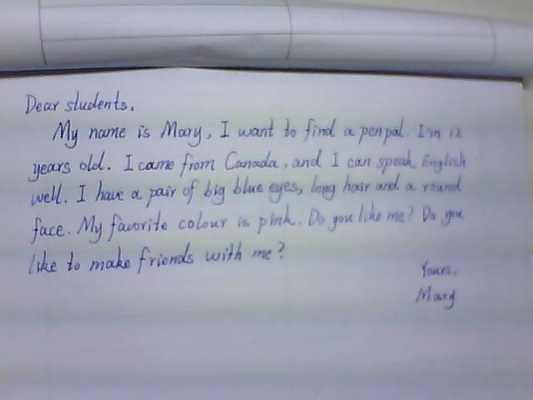 Dear students,
My name is Mary, I want to find a penpal. I'm 12
years old. I came from Canada, and I can speak English
well. I have a pair of big blue eyes, long hair and a round
face. My favorite colour is pink. Do you like me? Do you
like to make friends with me?
Yours,
Mary